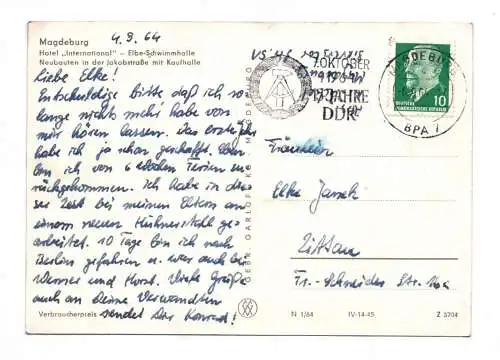 Magdeburg
4.9.64
Hotel „International" – Elbe-Schwimmhalle
Neubauten in der Jakobstraße mit Kaufhalle
Liebe Elke!
Entschuldige bitte daß ich so
lange nichts mehr habe von
mir hören lassen. Das erste Jahr
habe ich ja schon geschafft.
bin ich von 6 Wochen Ferien zu-
rückgekommen. Ich habe in die-
ser Zeit bei meinen Eltern an
einem neuen Hühnerstall ge-
arbeitet. 10 Tage bin ich nach
Berlin gefahren u. war auch bei
Werner und Horst. Viele Grüße
auch an Deine Verwandten
sendet Dir Konrad!
Verbraucherpreis
GEBR. GARLOFF KG MAGDEBURG
7.OKTOBER
1964
15 JAHRE
DDR
MAGDEBURG
BPA 1
10
DEUTSCHE
DEMOKRATISCHE REPUBLIK
Fräulein
Elke
Zittau
Fr.-Schneider Str.
N 1/64
IV-14-45
Z 5704